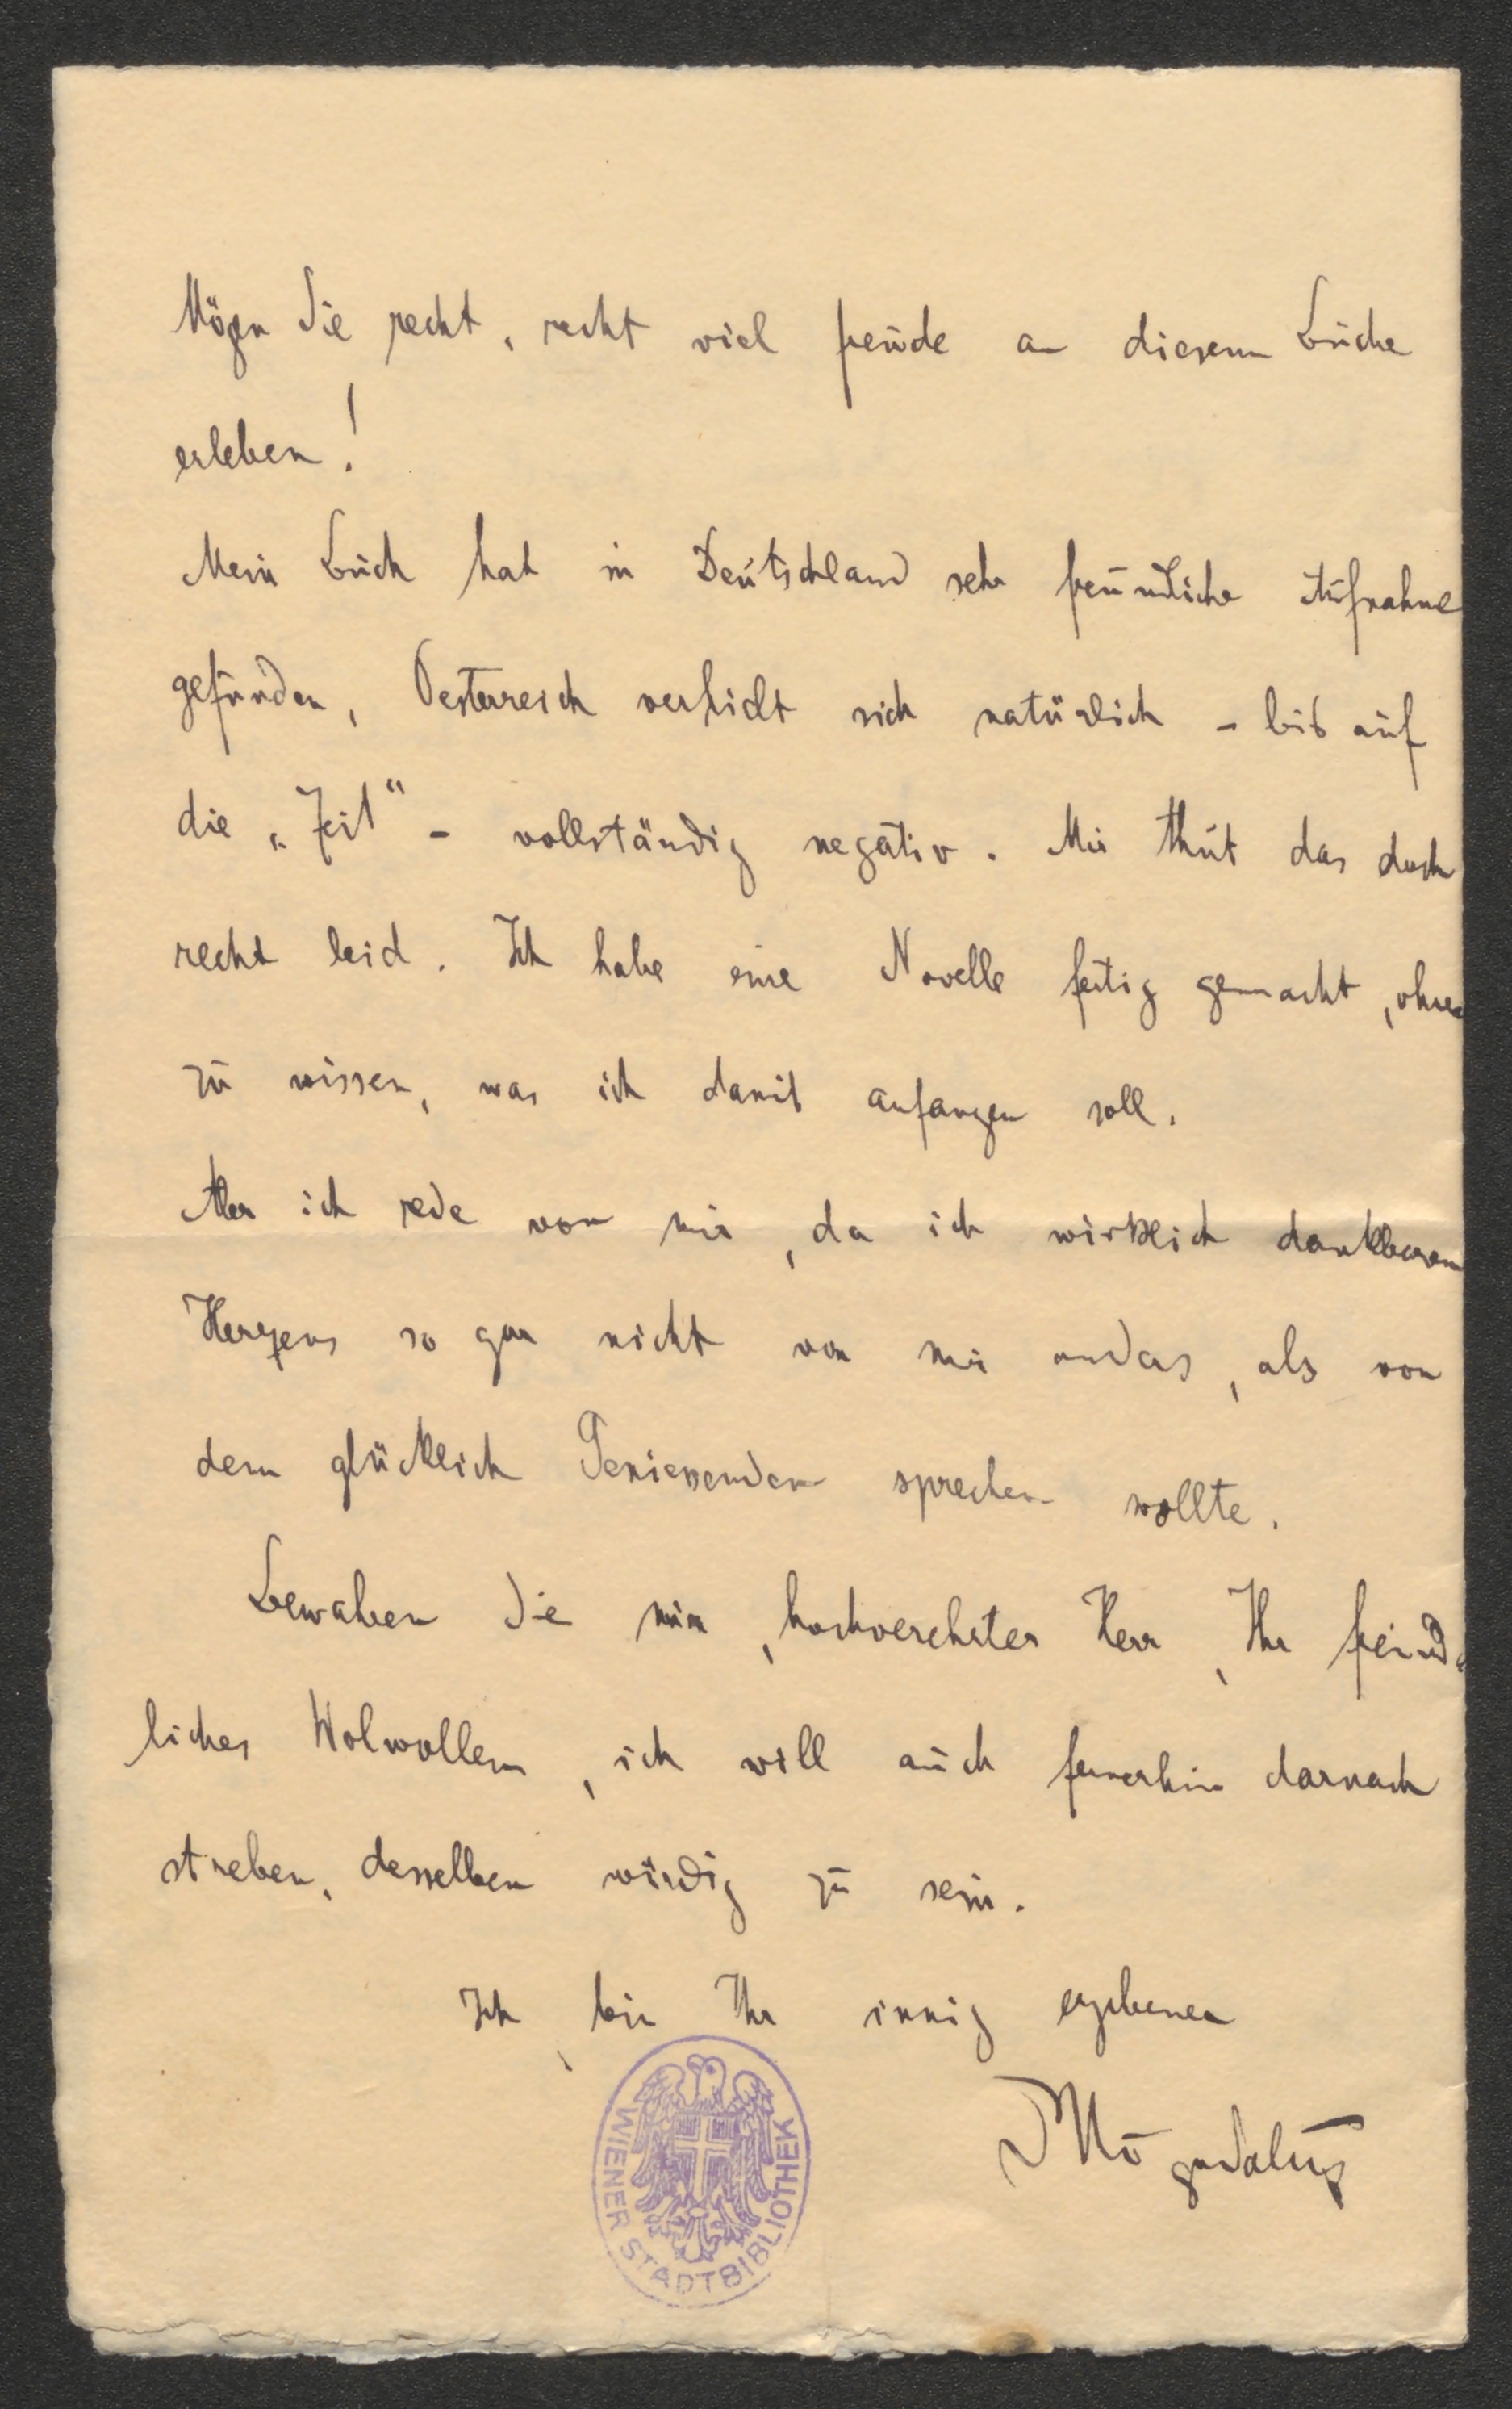 Mögen Sie recht, recht viel Freude an diesem Buche
erleben!
Mein Buch hat in Deutschland sehr freundliche Aufnahme
gefunden, Oesterreich verhielt sich natürlich – bis auf
die „Zeit“ – vollständig negativ. Mir thut das doch
recht leid. Ich habe eine Novelle fertig gemacht, ohne
zu wissen, was ich damit anfangen soll.
Aber ich rede von mir, da ich wirklich dankbaren
Herzens so gar nicht von mir anders, als von
dem glücklich Geniessenden sprechen wollte.
Bewahren Sie mir, hochverehrter Herr, Ihr freund-
liches Wolwollen, ich will auch fernerhin darnach
streben, desselben würdig zu sein.
Ich bin Ihr innig ergebener
WIENER STADTBIBLIOTHEK